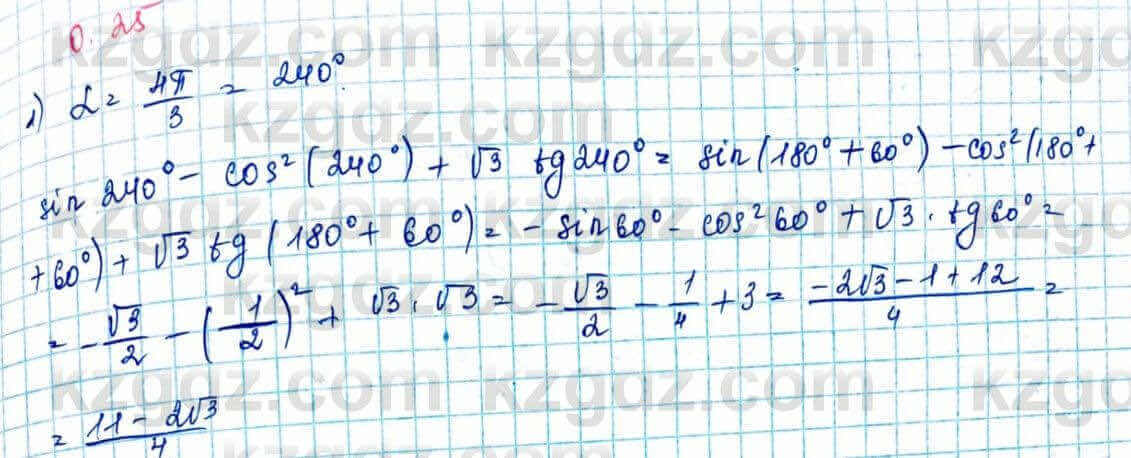 0.25
1) α = 4π/3 = 240°.
sin 240° - cos²(240°) + √3 tg 240° = sin(180° + 60°) - cos²(180° +
+ 60°) + √3 tg(180° + 60°) = - sin 60° - cos² 60° + √3 · tg 60° =
= - √3/2 - (1/2)² + √3 · √3 = - √3/2 - 1/4 + 3 = (-2√3 - 1 + 12)/4 =
= (11 - 2√3)/4
kzgdz.com kzgdz.com kzgdz.com
kzgdz.com
kzgdz.com kzgdz.com kzgdz.com
kzgdz.com
kzgdz.com kzgdz.com kzgdz.com
kzgdz.com